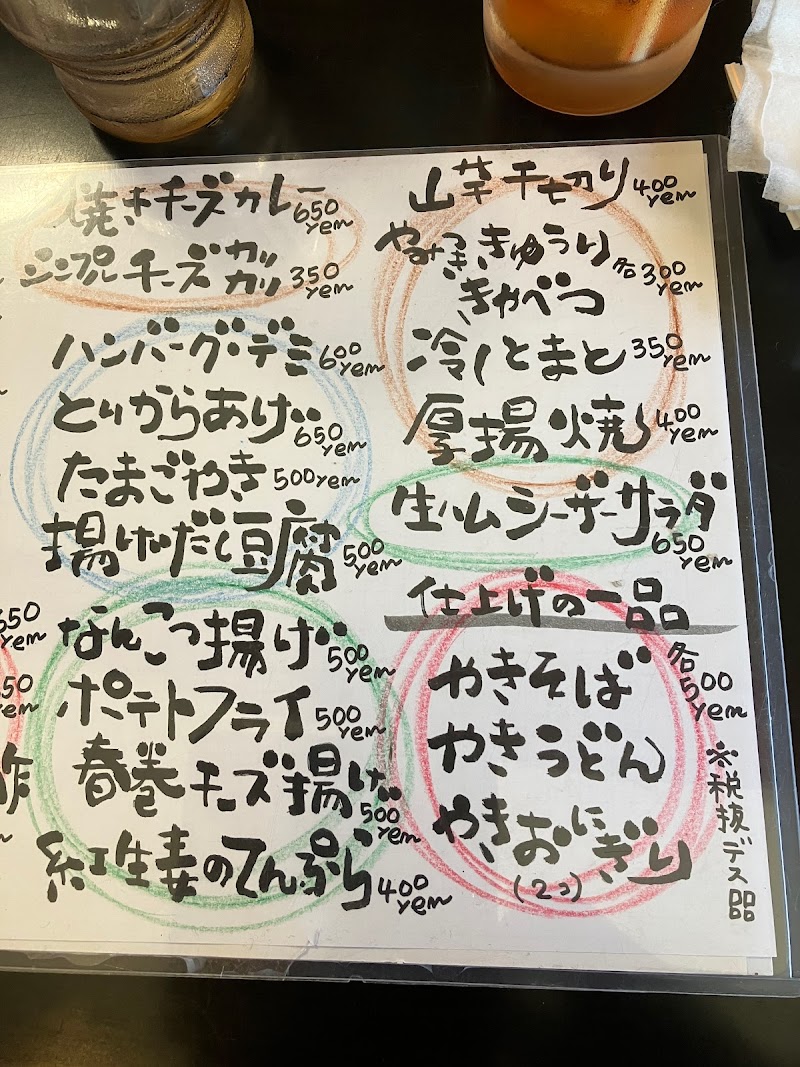 焼きチーズカレー 650yen
シンプルチーズカツカツ 350yen
ハンバーグ・デミ 600yen
とりからあげ 650yen
たまごやき 500yen
揚げだし豆腐 500yen
なんこつ揚げ 500yen
ポテトフライ 500yen
春巻チーズ揚げ 500yen
紅生姜のてんぷら 400yen
山芋千切り 400yen
やみつききゅうり
きゃべつ
各300yen
冷しとまと 350yen
厚揚焼 400yen
生ハムシーザーサラダ 650yen
仕上げの一品
各500yen
やきそば
やきうどん
やきおにぎり
(2コ)
※税抜デス